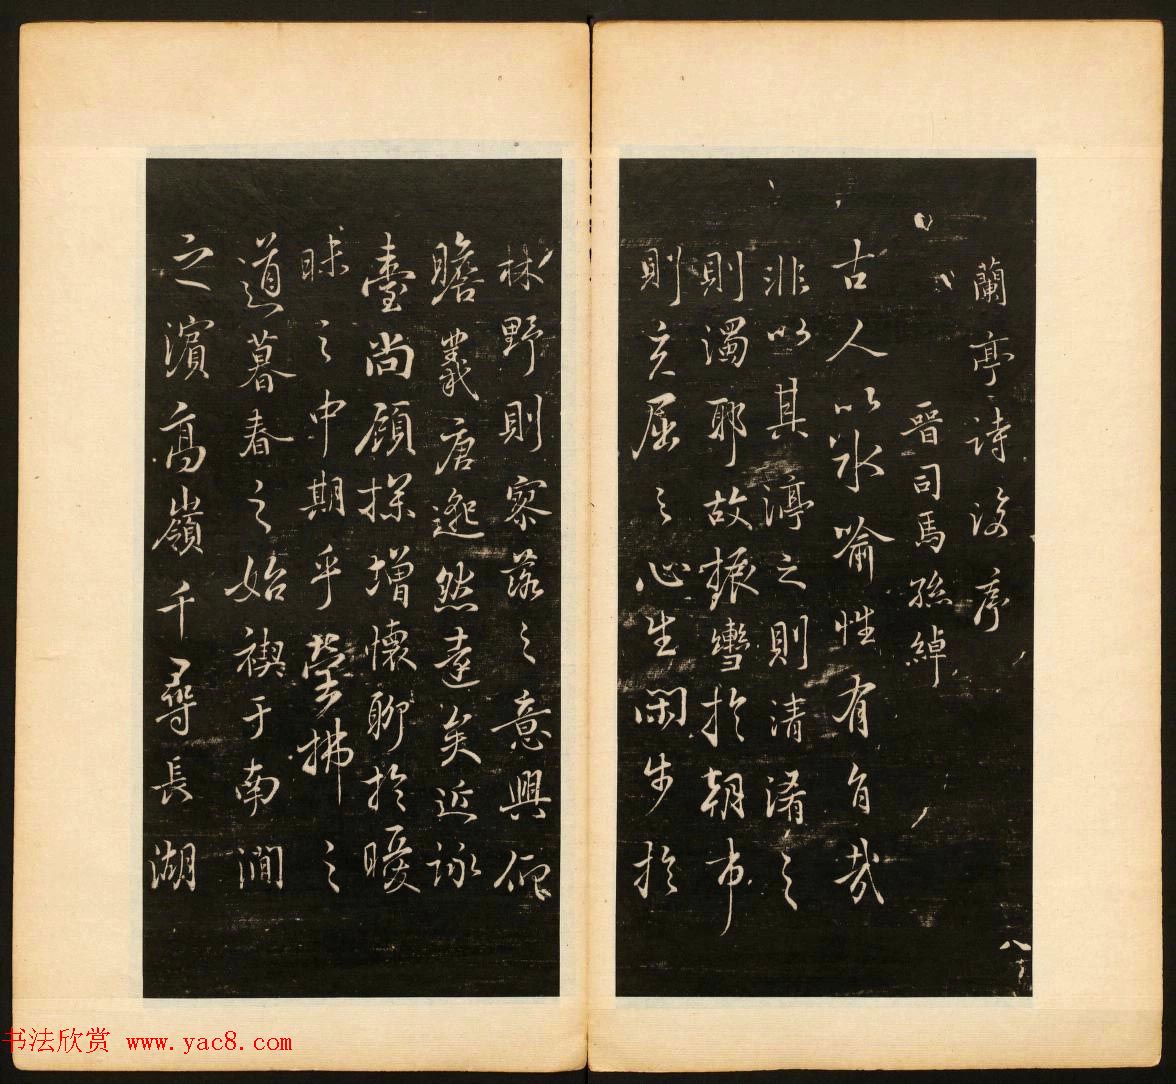 蘭亭詩後序
晉司馬孫綽
古人以水喻性有旨哉
非以其渟之則清淆之
則濁耶故振轡於朝市
則充屈之心生閑步於
林野則寥落之意興仰
瞻羲唐邈然遠矣近詠
臺尚顧探增懷聊於曖
昧之中期乎瑩拂之
道暮春之始禊于南澗
之濱高嶺千尋長湖
八十
书法欣赏 www.yac8.com